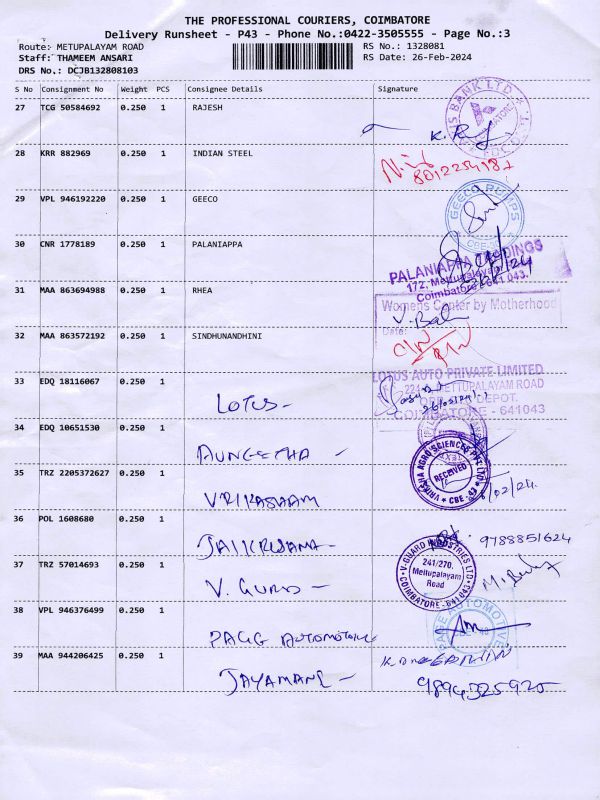 THE PROFESSIONAL COURIERS, COIMBATORE
Delivery Runsheet - P43 - Phone No.:0422-3505555 - Page No.:3
Route: METUPALAYAM ROAD
RS No.: 1328081
Staff: THAMEEM ANSARI
RS Date: 26-Feb-2024
DRS No.: DCJB132808103
S No Consignment No Weight PCS Consignee Details Signature
27 TCG 50584692 0.250 1 RAJESH
28 KRR 882969 0.250 1 INDIAN STEEL
8012254182
29 VPL 946192220 0.250 1 GEECO
GEECO PUMPS
CBE-
30 CNR 1778189 0.250 1 PALANIAPPA
PALANIAPPA
172, Mettupalayam
Coimbatore - 641 043.
31 MAA 863694988 0.250 1 RHEA
Womens Center by Motherhood
Date:
32 MAA 863572192 0.250 1 SINDHUNANDHINI
LOTUS AUTO PRIVATE LIMITED
33 EDQ 18116067 0.250 1
METTUPALAYAM ROAD
DEPOT.
COIMBATORE - 641043
LOTUS -
34 EDQ 10651530 0.250 1
35 TRZ 2205372627 0.250 1
VRIKSHA AGRO SCIENCES PVT LTD
RECEIVED
CBE-43
36 POL 1608680 0.250 1
9788851624
37 TRZ 57014693 0.250 1
V-GUARD INDUSTRIES LTD
241/270,
Mettupalayam
Road
COIMBATORE - 641 043
V. GURD -
38 VPL 946376499 0.250 1
PAGE AUTOMOTIVE
PAGG AUTOMOTIVE
39 MAA 944206425 0.250 1
JAYAMANI -
9894325925